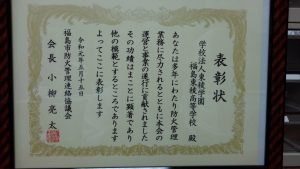 表彰状
学校法人東稜学園
福島東稜高等学校 殿
あなたは多年にわたり防火管理
業務に尽力されるとともに本会の
運営と事業の遂行に貢献されました
その功績はまことに顕著であり
他の模範とするところであります
よってここに表彰します
令和元年五月十五日
福島市防火管理連絡協議会
会長 小柳亮太